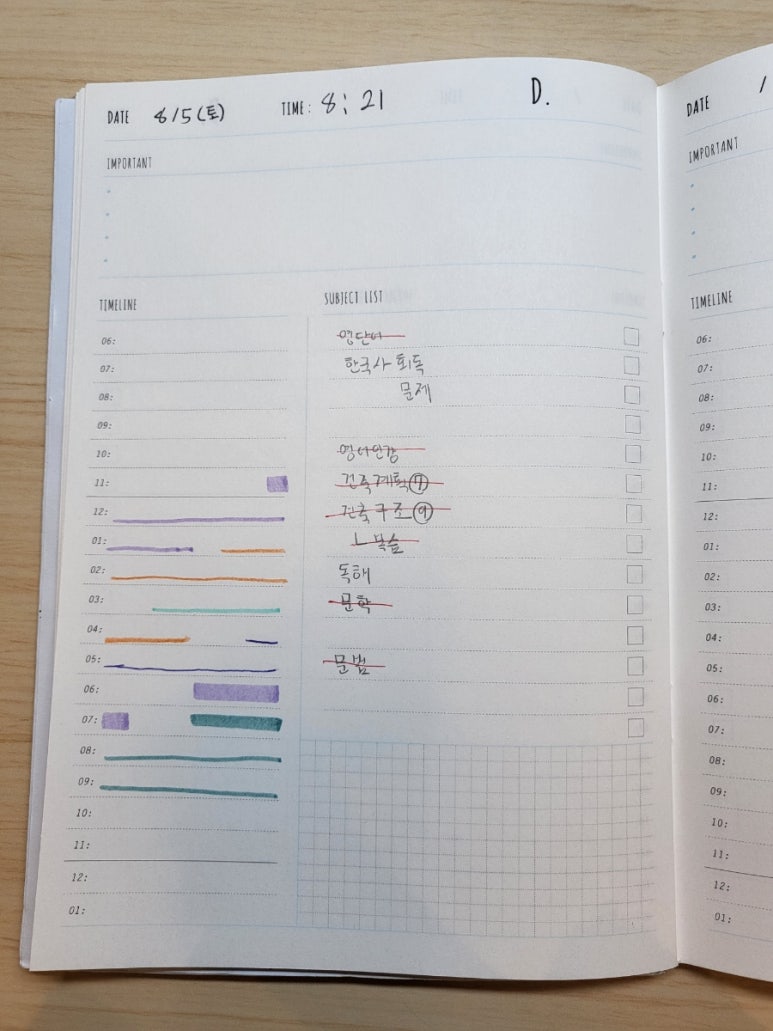 DATE 8/5(토) TIME: 8:21 D.
IMPORTANT
TIMELINE
06:
07:
08:
09:
10:
11:
12:
01:
02:
03:
04:
05:
06:
07:
08:
09:
10:
11:
12:
01:
SUBJECT LIST
영단어
한국사 회독
문제
영어인강
건축계획⑦
건축구조⑨
ㄴ 복습
독해
문학
문법
DATE /
IMPORTANT
TIMELINE
06:
07:
08:
09:
10:
11:
12:
01:
02:
03:
04:
05:
06:
07:
08:
09:
10:
11:
12:
01: